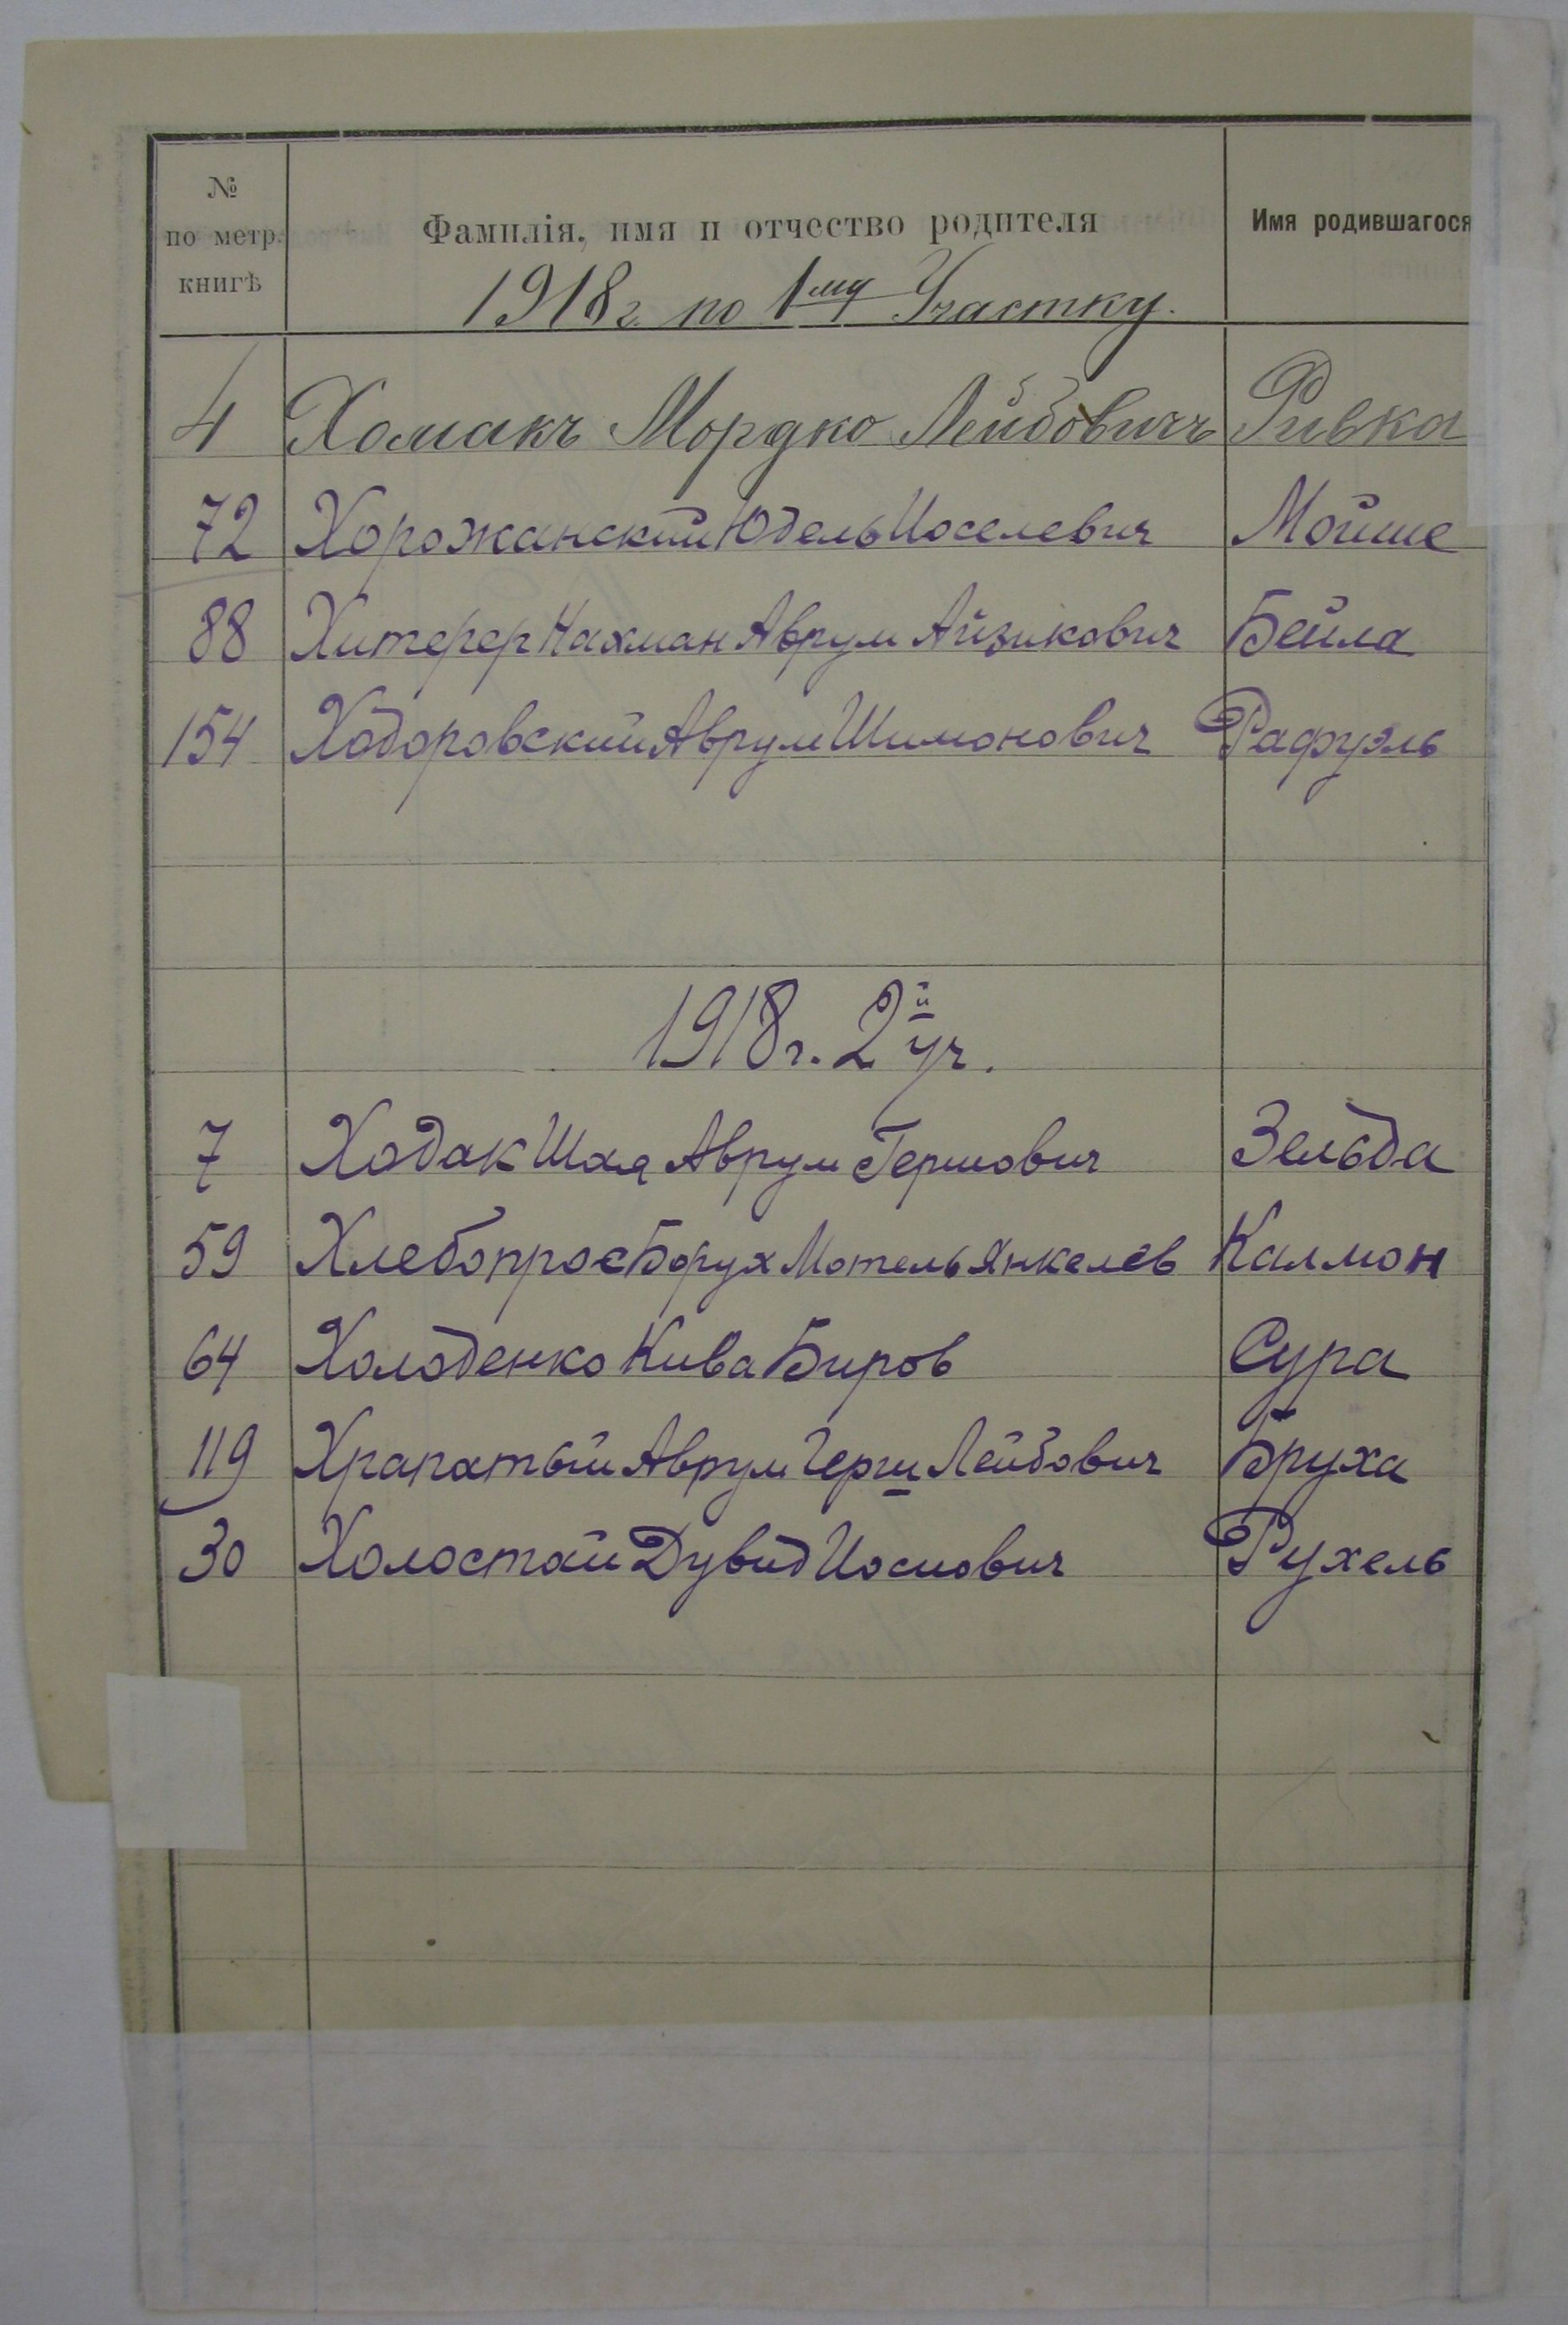 № по метр. книгѣ | Фамилія, имя и отчество родителя | Имя родившагося
1918 г. по 1му Участку.
4 Хомакъ Мордко Лейбовичъ Ривка
72 Хорожанский Юдель Иоселевич Мойше
88 Хитерер Нахман Аврум Айзикович Бейла
154 Ходоровский Аврум Шимонович Рафуэль
1918 г. 2й уч.
7 Ходак Шая Аврум Гершович Зельда
59 Хлебопрос Борух Мотель Янкелев Калмон
64 Холоденко Кива Биров Сура
119 Храпатый Аврум Герш Лейбович Бруха
30 Холостай Дувид Иосиович Рухель